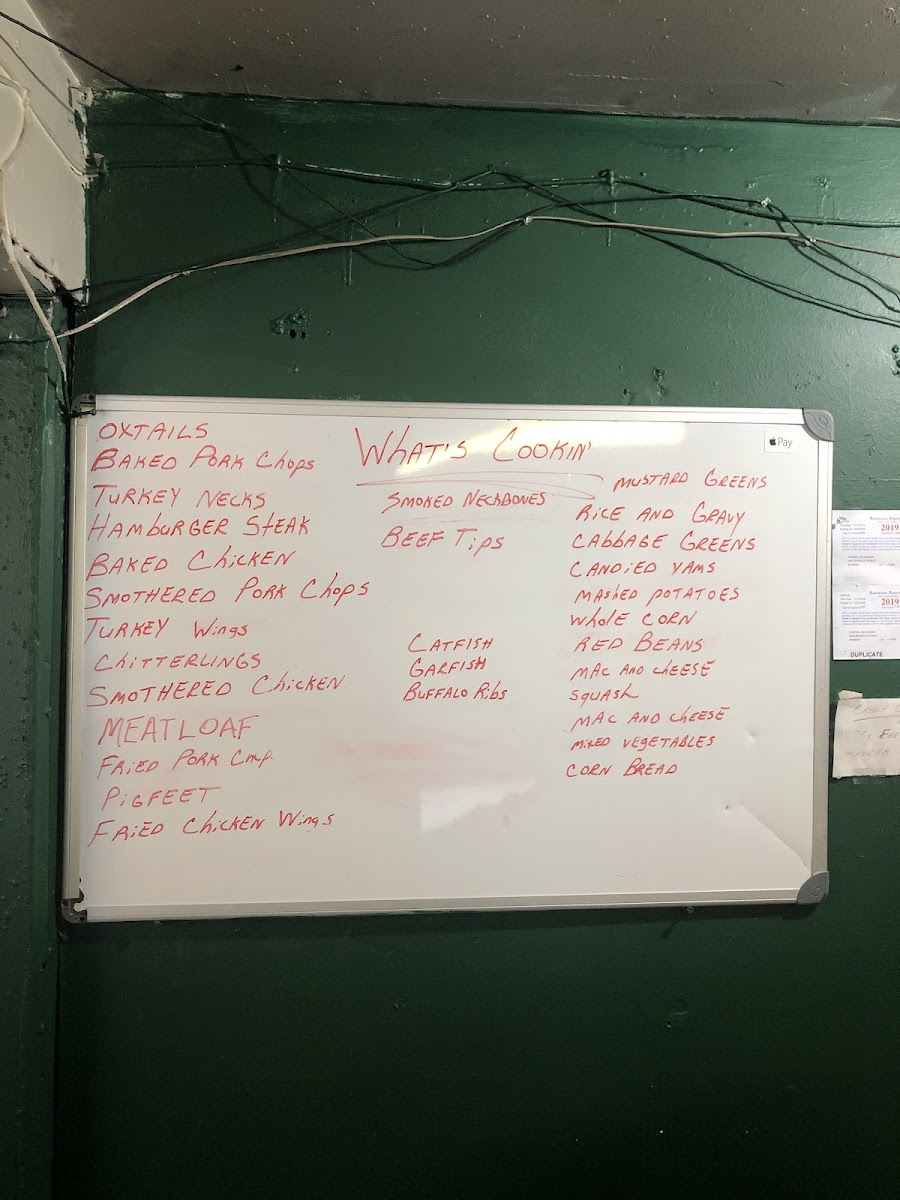 WHAT'S COOKIN'
Pay
OXTAILS
BAKED PORK CHOPS
TURKEY NECKS
HAMBURGER STEAK
BAKED CHICKEN
SMOTHERED PORK CHOPS
TURKEY WINGS
CHITTERLINGS
SMOTHERED CHICKEN
MEATLOAF
FRIED PORK
PIGFEET
FRIED CHICKEN WINGS
SMOKED NECKBONES
BEEF TIPS
CATFISH
GARFISH
BUFFALO RIBS
MUSTARD GREENS
RICE AND GRAVY
CABBAGE GREENS
CANDIED YAMS
MASHED POTATOES
WHOLE CORN
RED BEANS
MAC AND CHEESE
SQUASH
MAC AND CHEESE
MIXED VEGETABLES
CORN BREAD
2019
2019
DUPLICATE